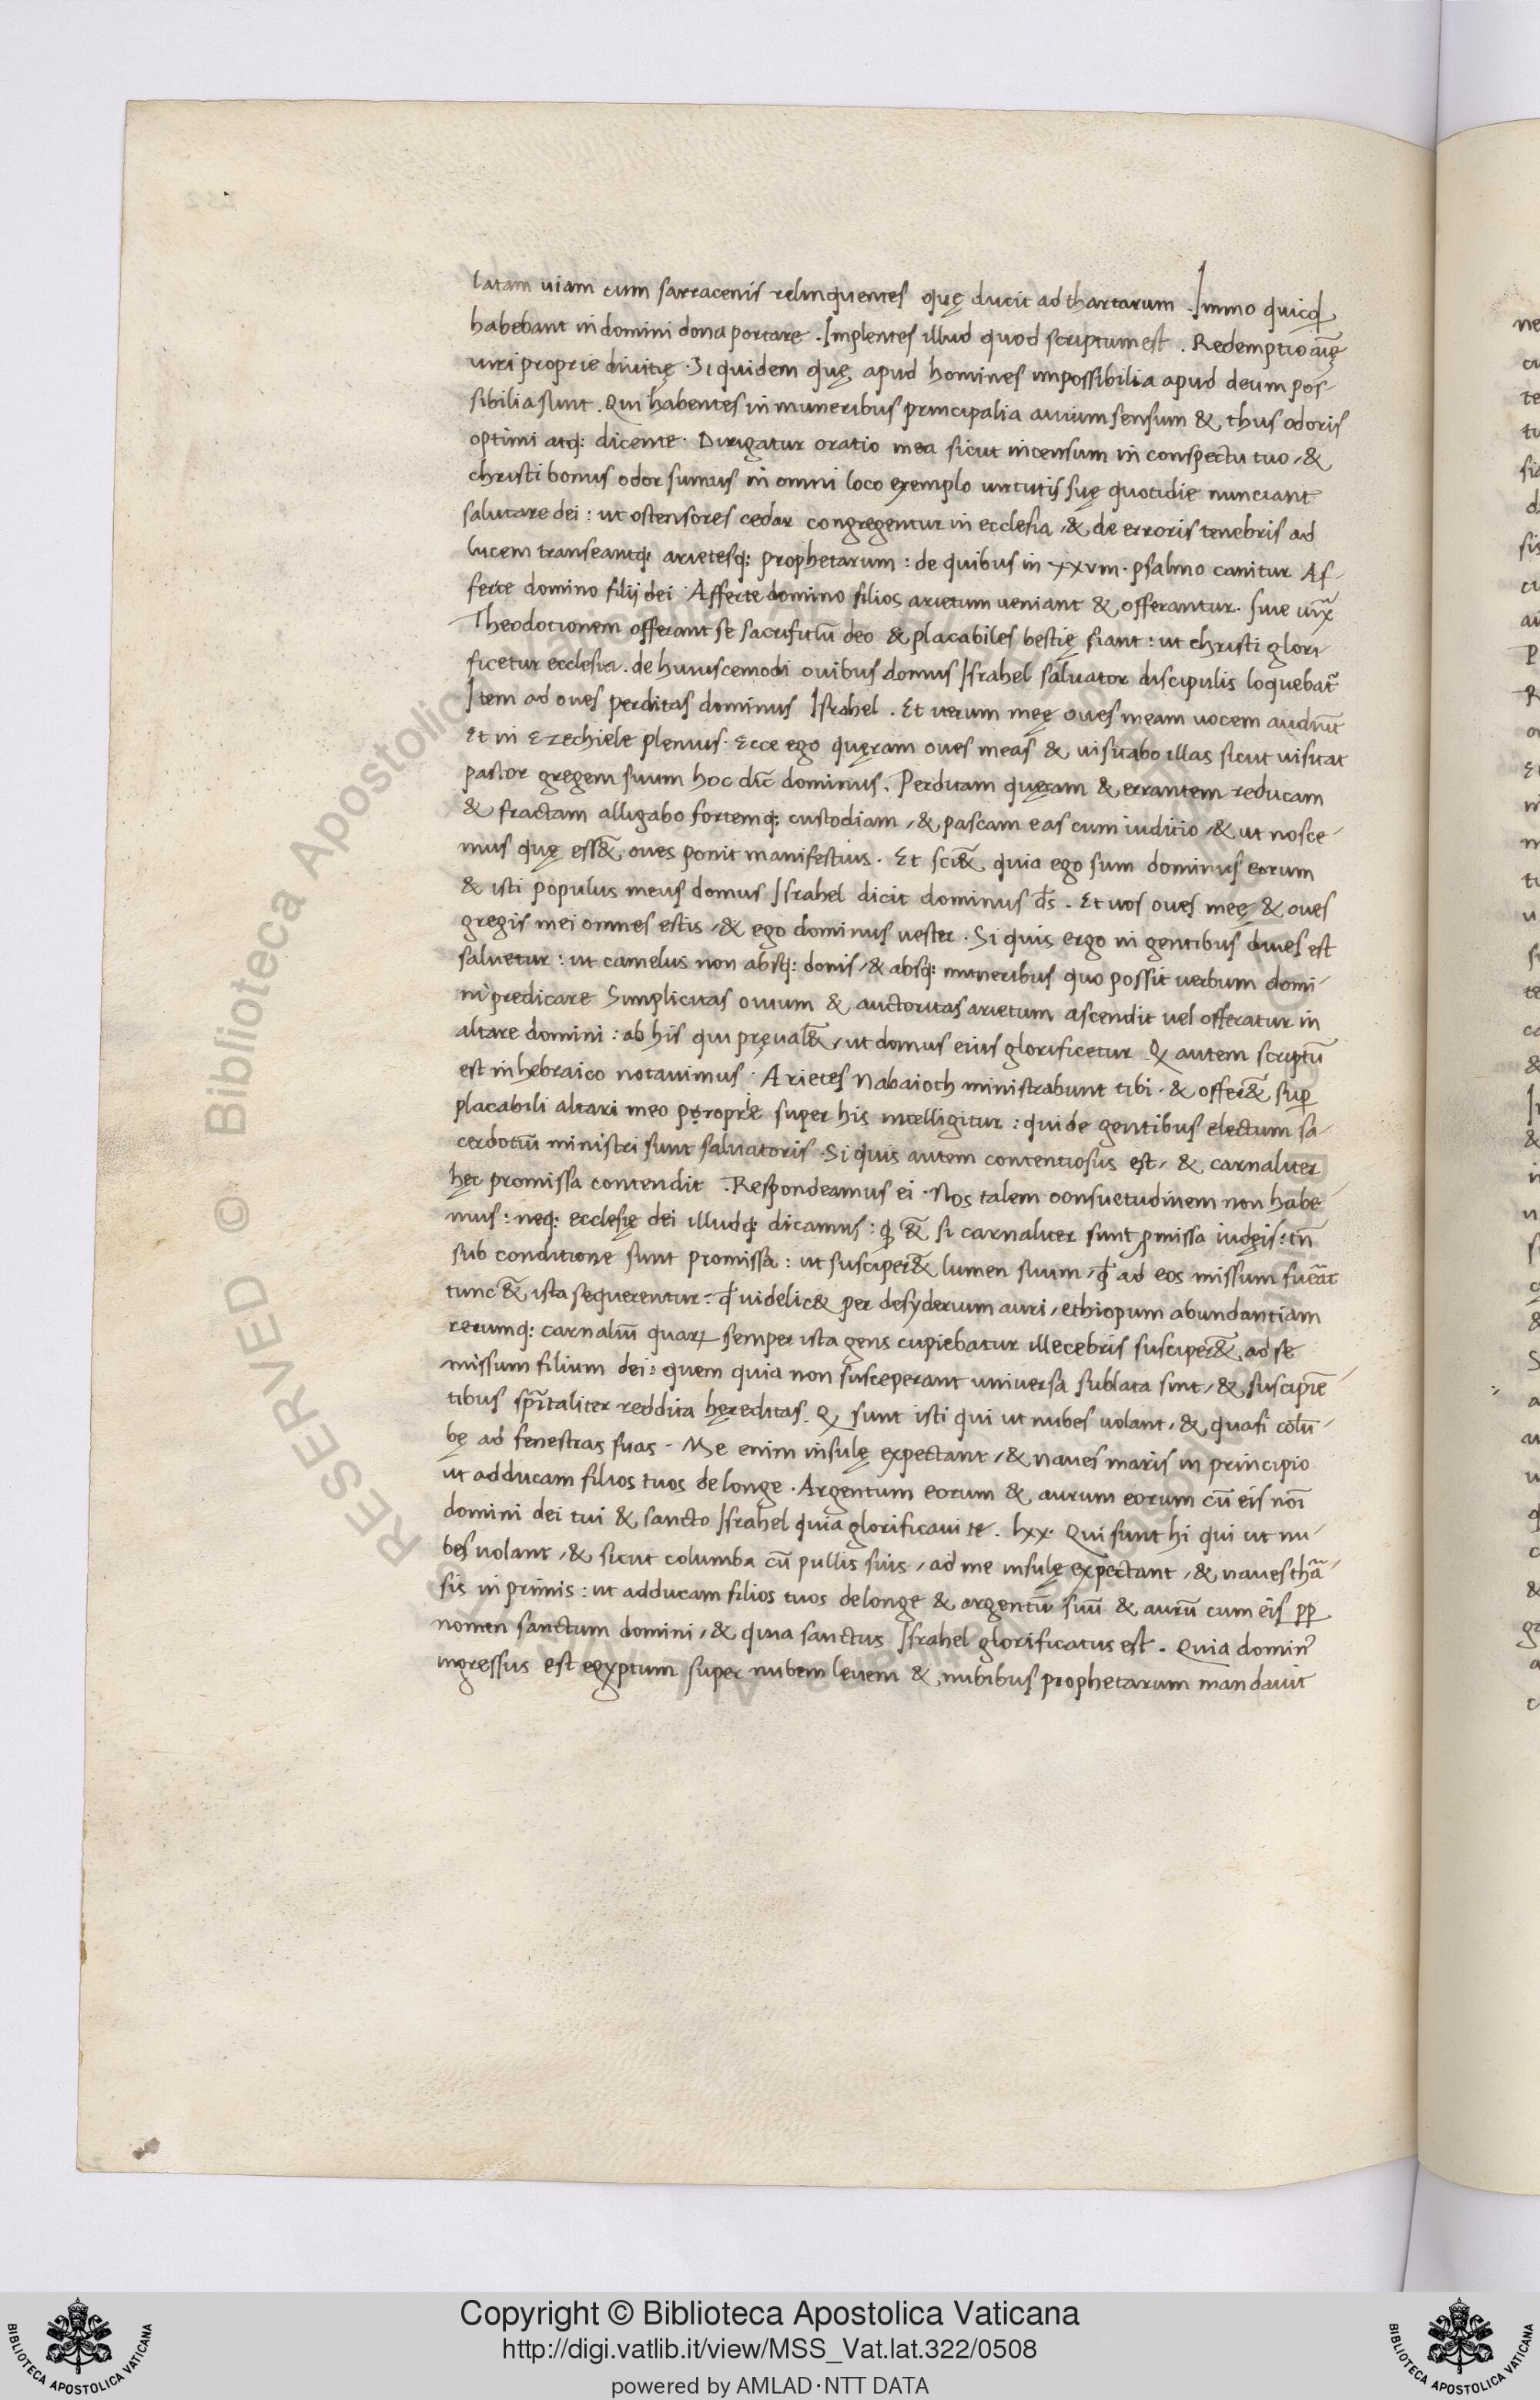 latam uiam cum sarracenis relinquentes quę ducit ad thartarum . Immo quicqd
habebant in domini dona portare . Implentes illud quod scriptum est . Redemptio aīę
uiri proprie diuitię . Si quidem quę apud homines impossibilia apud deum pos-
sibilia sunt . Qui habentes in muneribus principalia auium sensum & thus odoris
optimi atq: dicente . Dirigatur oratio mea sicut incensum in conspectu tuo , &
christi bonus odor sumus in omni loco exemplo uirtutis suę quotidie nunciant
salutare dei : ut ostensores cedar congregentur in ecclesia , & de erroris tenebris ad
lucem transeantq: arietesq: prophetarum : de quibus in xxviii . psalmo canitur Af-
ferte domino filij dei Afferte domino filios arietum ueniant & offerantur . siue
Theodotionem offerant se sacrifitiū deo & placabiles bestię fiant : ut christi glori-
ficetur ecclesia . de huiuscemodi ouibus domus Israhel saluator discipulis loquebat~
Item ad oues perditas dominus Israhel . Et uerum meę oues meam uocem audiūt
Et in Ezechiele plenius . Ecce ego quęram oues meas & uisitabo illas sicut uisitat
pastor gregem suum hoc dic̄ dominus . Perditam quęram & errantem reducam
& fractam alligabo fortemq: custodiam , & pascam eas cum iuditio , & ut nosce-
mus quę ess&̄ oues ponit manifestius . Et sci&̄ quia ego sum dominus eorum
& isti populus meus domus Israhel dicit dominus ds̄ . Et uos oues meę & oues
gregis mei omnes estis , & ego dominus uester . Si quis ergo in gentibus diues est
saluetur : ut camelus non absq: donis , & absq: muneribus quo possit uerbum domi-
ni predicare Simplicitas ouium & auctoritas arietum ascendit uel offeratur in
altare domini : ab his qui pręual&̄ , ut domus eius glorificetur Q autem scriptū
est in hebraico notauimus . Arietes Nabaioth ministrabunt tibi . & offer&̄ suꝑ
placabili altari meo proprie super his intelligitur : qui de gentibus electum sa-
cerdotiū ministri sunt saluatoris . Si quis autem contentiosus est , & carnaliter
hęc promissa contendit . Respondeamus ei . Nos talem consuetudinem non habe-
mus : neq: ecclesię dei illudq: dicamus : q &̄ si carnaliter sunt ꝓmissa iudęis : tn̄
sub conditione sunt promissa : ut susciper&̄ lumen suum , qd ad eos missum fuerat
tunc &̄ ista sequerentur : qd uidelic& per desyderium auri , ethiopum abundantiam
rerumq: carnaliū quaꝝ semper ista gens cupiebatur illecebris susciper&̄ ad se
missum filium dei : quem quia non susceperant uniuersa sublata sint , & suscipiē-
tibus sp̄ritaliter reddita hęreditas . Q sunt isti qui ut nubes uolant , & quasi colū-
bę ad fenestras suas . Me enim insulę expectant , & naues maris in principio
ut adducam filios tuos de longe . Argentum eorum & aurum eorum cū eis noī
domini dei tui & sancto Israhel quia glorificaui te . lxx . Qui sunt hi qui ut nu-
bes uolant , & sicut columba cū pullis suis , ad me insulę expectant , & naues thā-
sis in primis : ut adducam filios tuos de longe & argentū suū & aurū cum eis ꝓp
nomen sanctum domini , & quia sanctus Israhel glorificatus est . Quia domin'
ingressus est egyptum super nubem leuem & nubibus prophetarum mandauit
© Biblioteca Apostolica Vaticana
RESERVED
Copyright © Biblioteca Apostolica Vaticana
http://digi.vatlib.it/view/MSS_Vat.lat.322/0508
powered by AMLAD·NTT DATA
BIBLIOTECA APOSTOLICA VATICANA
BIBLIOTECA APOSTOLICA VATICANA